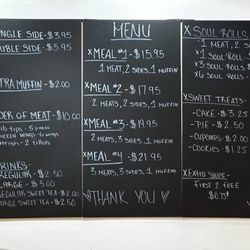 SINGLE SIDE - $3.95
DOUBLE SIDE - $5.95
EXTRA MUFFIN - $2.00
ORDER OF MEAT - $10.00
DRINKS -
REGULAR - $2.50
LARGE - $5.00
REGULAR SWEET TEA - $2.00
LARGE SWEET TEA - $2.50
MENU
X MEAL #1 - $15.95
1 MEAT, 2 SIDES, 1 MUFFIN
X MEAL #2 - $17.95
2 MEATS, 2 SIDES, 1 MUFFIN
X MEAL #3 - $19.95
2 MEATS, 3 SIDES, 1 MUFFIN
X MEAL #4 - $21.95
3 MEATS, 3 SIDES, 1 MUFFIN
THANK YOU
X SOUL ROLLS
1 MEAT, 2
X1 SOUL
X3 SOUL ROLLS
X6 SOUL ROLLS
X SWEET TREATS
- CAKE - $3.25
- PIE - $2.50
- CUPCAKE - $2.00
- COOKIES - $1.25
X EXTRA SAUCE -
FIRST 2 FREE